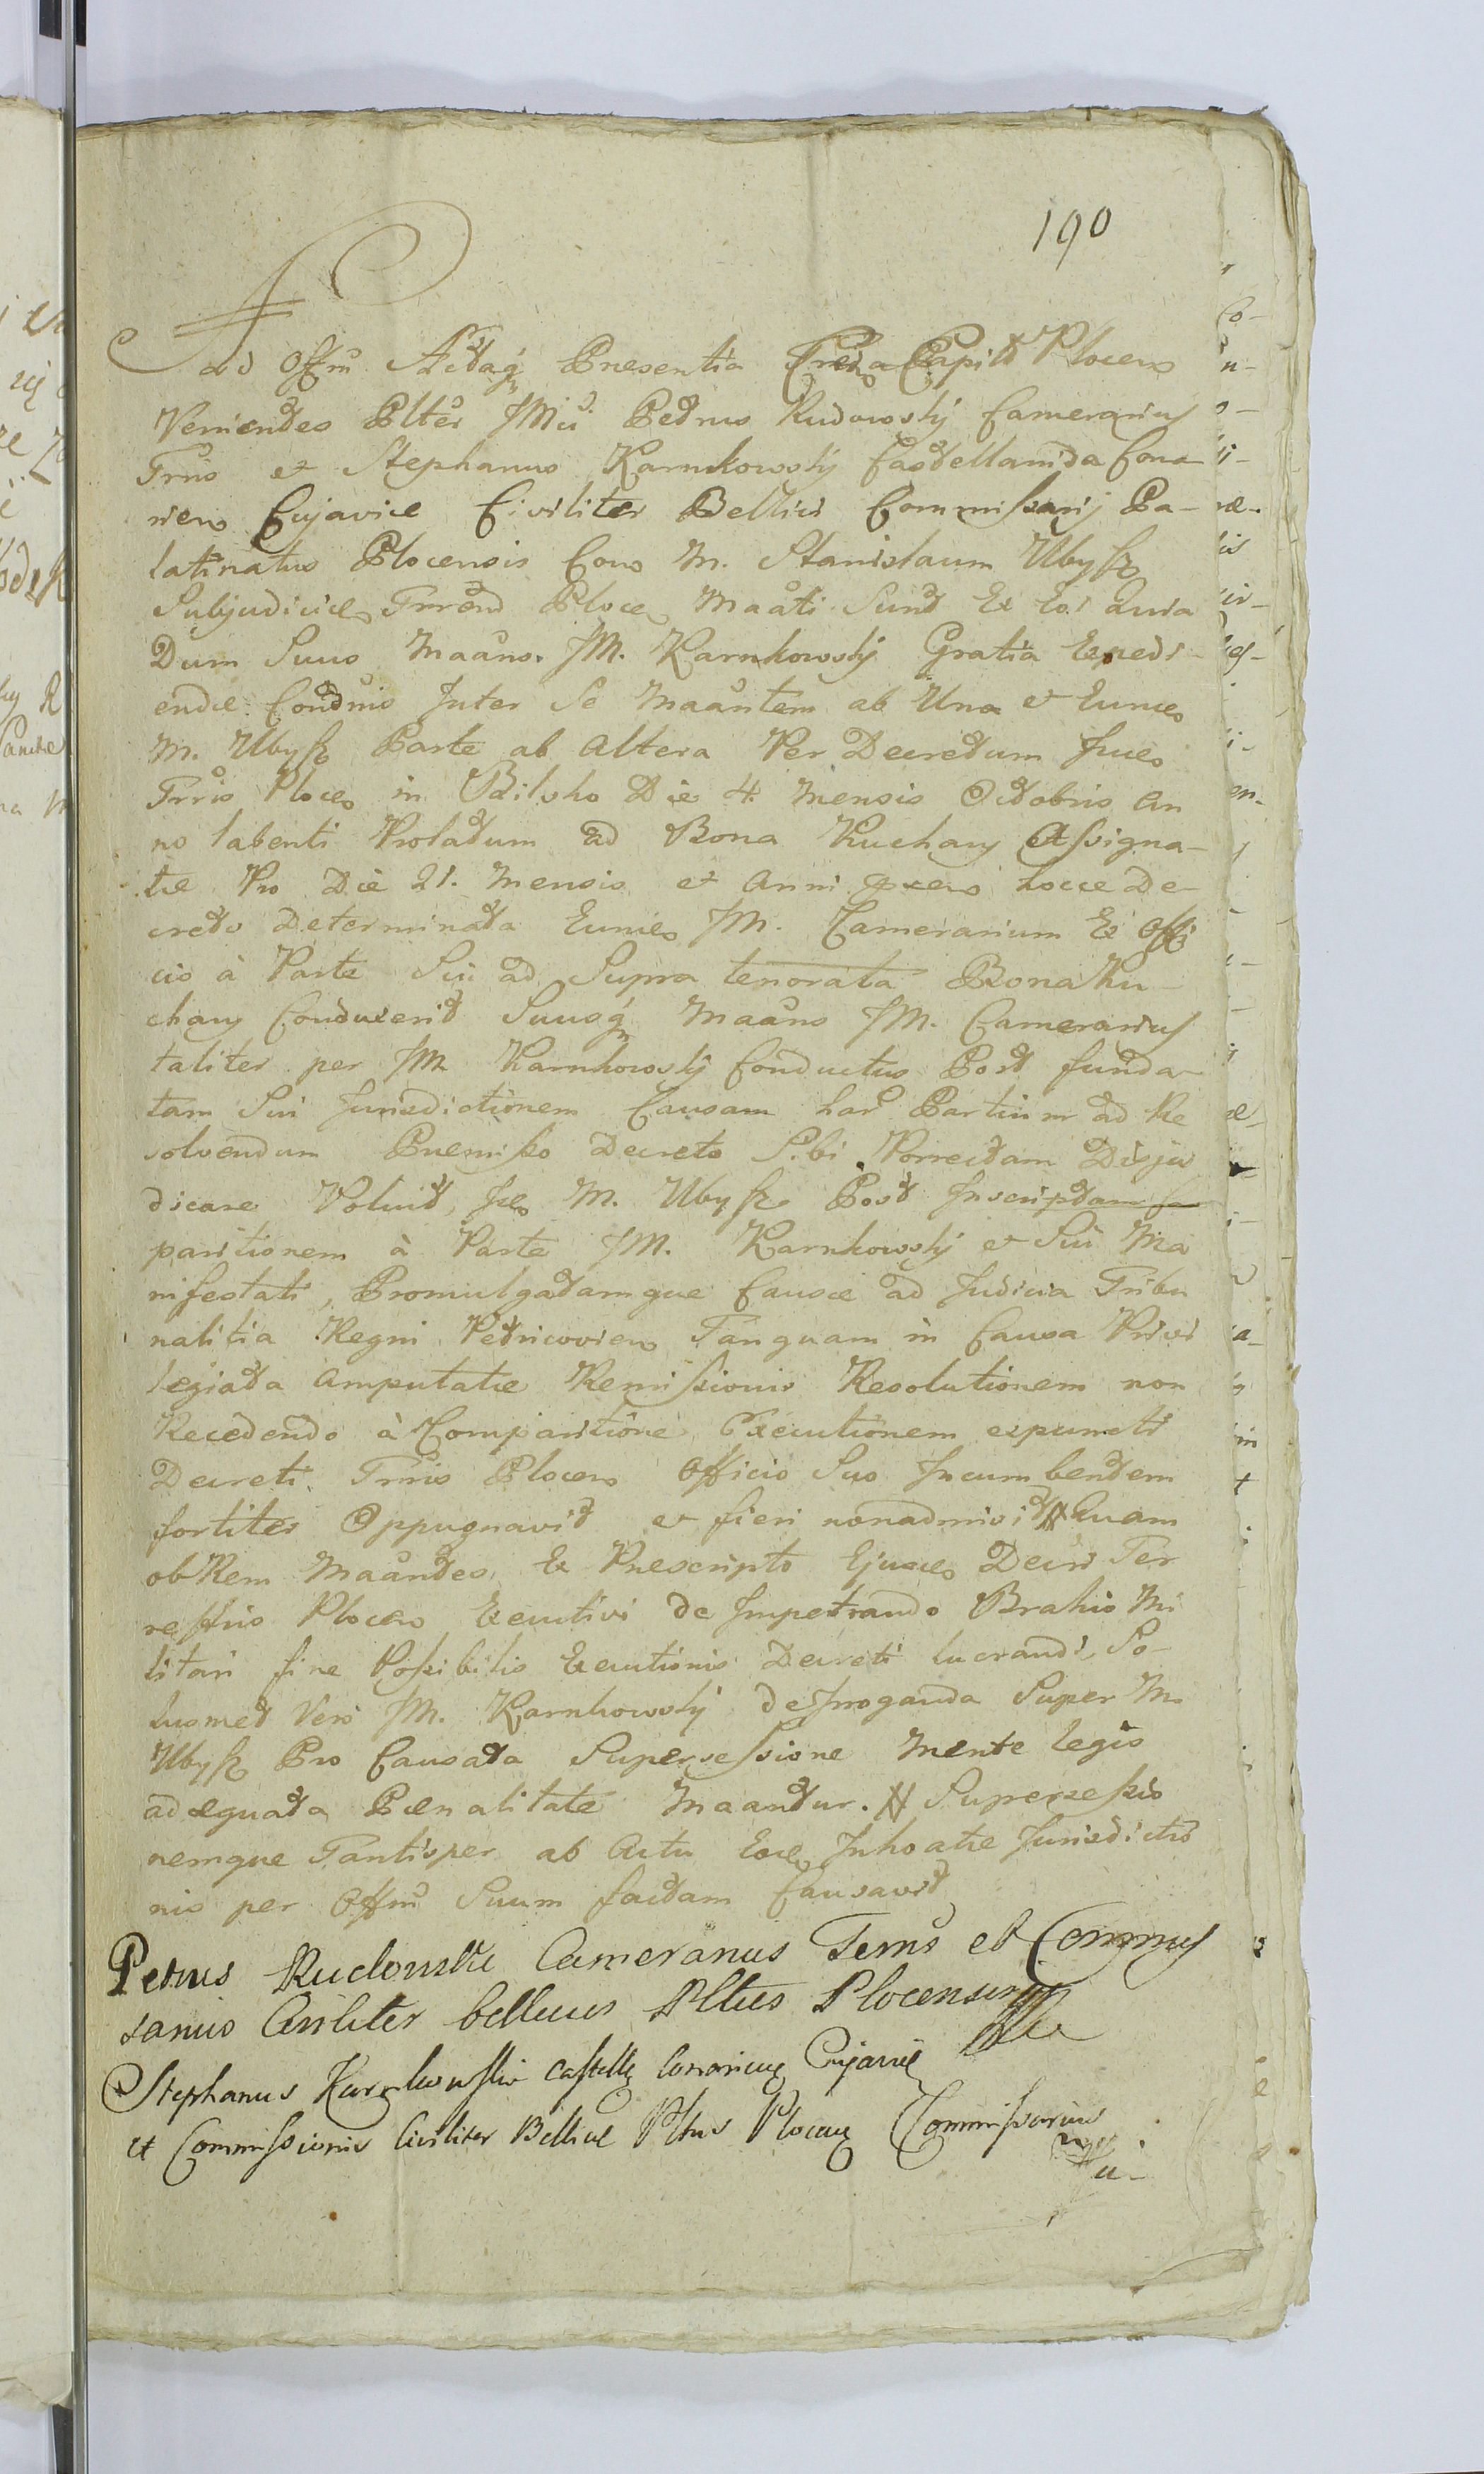 190
Ad Offm Actaq Presentia Capit Plocens
Venientes Plter JMci Petrus Rudowsky Camerarius
Trris et Stephanus Karnkowsky Castellanida Cona
riens Cujaviæ Civiliter Bellici Commissarij Pa-
latinatus Plocensis Cons M. Stanislaum Ubysz
Subjudicies Trrend Ploces Maãti Sunt Ex Eo! Quia
Dum Suus Maãns. JM. Karnkowsky Gratia Expedi-
endæ Condnis Inter Se Maãntem ab Una et Eunces
M. Ubysz Parte ab Altera Per Decretum Juces
Trris Ploces in Bilsko Die 4. Mensis Octobris An
no labenti Prolatum ad Bona Kuchary Assigna-
tæ Pro Die 21. Mensis et Anni præns hocce De-
creto Determinata Eunces JM. Camerarium Ex Offi
cio à Parte Sui ad Supra tenorata Bona Ku-
chary Conduxerit Suusq Maãns JM. Camerarius
taliter per JM Karnkowsky Conductus Post funda-
tam Sui Jurisdictionem Causam har Partium ad Re
solvendum Premisso Decreto Sibi Porrectam Dijju
dicare Voluit, Ices M. Ubysz Post Inscriptam
paritionem à Parte JM. Karnkowsky et Sui Ma
nifestati, Promulgatamque Causæ ad Judicia Tribu
nalitia Regni Petricoviens Tanquam in Causa Privi
legiata Amputatæ Remissionis Resolutionem non
Recedendo à Comparitione Executionem expuncti
Decreti Trris Plocens Officio Suo Incumbentem
fortiter Oppugnavit et fieri nonadmisit # Quam
ob Rem Maãntes Ex Prescripto Ejusces Decri Ter
restris Plocens Executivi de Impetrando Brahio Mi
litari fine Possibilis Executionis Decreti lucrandi, So-
lusmet Vero JM. Karnkowsky de Irroganda Super M.
Ubysz Pro Causata Supersessione Mente legis
adæquata Pœnalitate Maantur. # Supersessio
nemque Tantisper ab Actu Eoces Inhoatæ Jurisdictio
nis per Offm Suum factam Causavit
Petrus Rudowski Camerarius Terris et Commis
sarius Civiliter bellicus Pltus Plocensis
Stephanus Karnkowski Castell Conarien Cujaviæ
et Commissionis Civiliter Bellicæ Pltus Plocen Commissarius